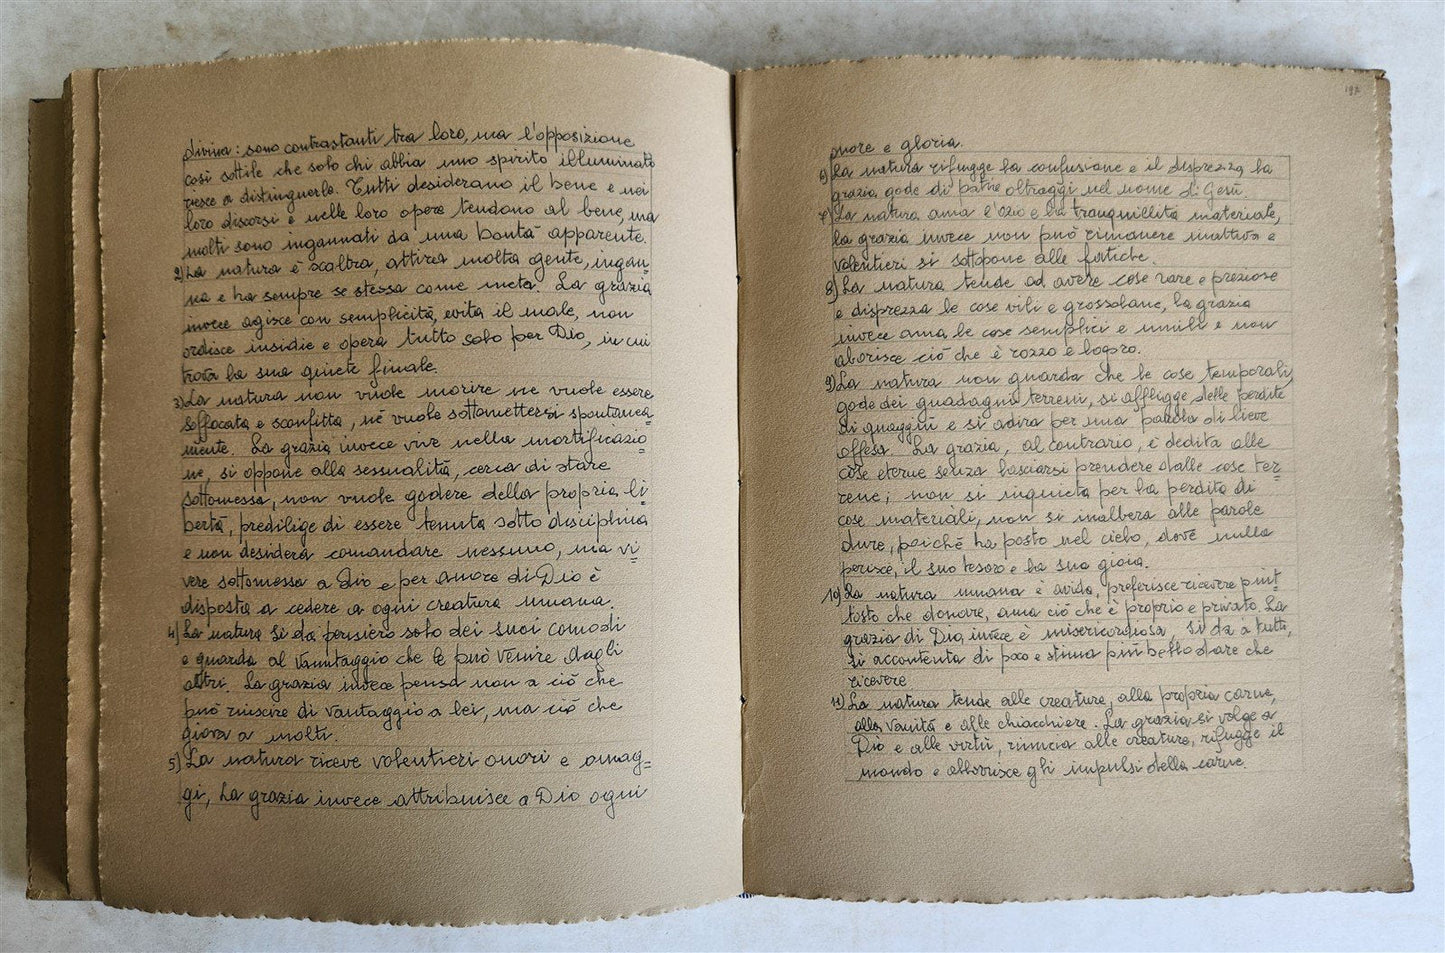 divina: sono contrastanti tra loro, ma l'opposizione
così sottile che solo chi abbia uno spirito illuminato
riesce a distinguerlo. Tutti desiderano il bene e nei
loro discorsi e nelle loro opere tendono al bene, ma
molti sono ingannati da una bontà apparente.
2) La natura è scaltra, attira molta gente, ingan=
na e ha sempre se stessa come meta. La grazia
invece agisce con semplicità, evita il male, non
ordisce insidie e opera tutto solo per Dio, in cui
trova la sua quiete finale.
3) La natura non vuole morire ne vuole essere
soffocata e sconfitta, né vuole sottomettersi spontanea=
mente. La grazia invece vive nella mortificazio=
ne, si oppone alla sessualità, cerca di stare
sottomessa, non vuole godere della propria li=
bertà, predilige di essere tenuta sotto disciplina
e non desidera comandare nessuno, ma vi=
vere sottomessa a Dio e per amore di Dio è
disposta a cedere a ogni creatura umana.
4) La natura si dà pensiero solo dei suoi comodi
e guarda al vantaggio che le può venire dagli
altri. La grazia invece pensa non a ciò che
può riuscire di vantaggio a lei, ma ciò che
giova a molti.
5) La natura riceve volentieri onori e omag=
gi, La grazia invece attribuisce a Dio ogni
197
onore e gloria.
6) La natura rifugge la confusione e il disprezzo la
grazia gode di patire oltraggi nel nome di Gesù.
7) La natura ama l'ozio e la tranquillità materiale,
la grazia invece non può rimanere inattiva e
volentieri si sottopone alle fatiche.
8) La natura tende ad avere cose rare e preziose
e disprezza le cose vili e grossolane, la grazia
invece ama le cose semplici e umili e non
aborisce ciò che è rozzo e logoro.
9) La natura non guarda che le cose temporali,
gode dei guadagni terreni, si affligge delle perdite
di guaggni e si adira per una parola di lieve
offesa. La grazia, al contrario, è dedita alle
cose eterne senza lasciarsi prendere dalle cose ter=
rene; non si inquieta per la perdita di
cose materiali, non si inalbera alle parole
dure, poiché ha posto nel cielo, dove nulla
perisce, il suo tesoro e la sua gioia.
10) La natura umana è avida, preferisce ricevere piut=
tosto che donare, ama ciò che è proprio e privato. La
grazia di Dio invece è misericordiosa, si dà a tutti,
si accontenta di poco e stima più bello dare che
ricevere
11) La natura tende alle creature, alla propria carne,
alla vanità e alle chiacchiere. La grazia si volge a
Dio e alle virtù, rinuncia alle creature, rifugge il
mondo e abborrisce gli impulsi della carne.